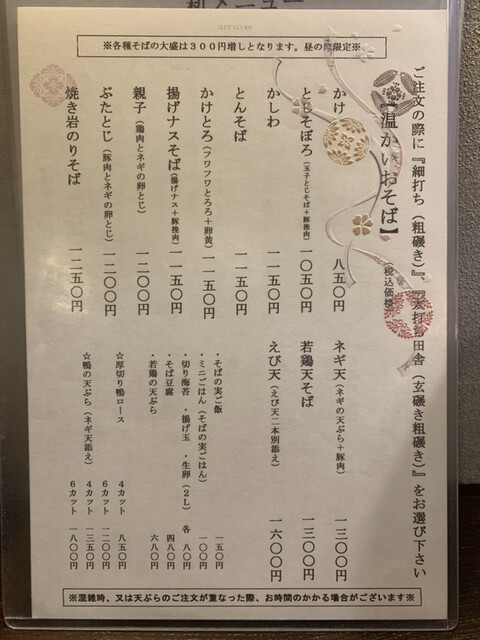 新メニュー
※各種そばの大盛は３００円増しとなります。昼の部限定※
ご注文の際に『細打ち（粗碾き）』、『太打ち田舎（玄碾き粗碾き）』をお選び下さい
【温かいおそば】
（税込価格）
かけ 八五〇円
とじそぼろ（玉子とじそば＋豚挽肉） 一〇五〇円
かしわ 一一五〇円
とんそば 一一五〇円
かけとろ（フワフワとろろ＋卵黄） 一一五〇円
揚げナスそば（揚げナス＋豚挽肉） 一一五〇円
親子（鶏肉とネギの卵とじ） 一二〇〇円
ぶたとじ（豚肉とネギの卵とじ） 一二〇〇円
焼き岩のりそば 一二五〇円
ネギ天（ネギの天ぷら＋豚肉） 一三〇〇円
若鶏天そば 一三〇〇円
えび天（えび天二本別添え） 一六〇〇円
・そばの実ご飯 一五〇円
・ミニごはん（そばの実ごはん） 一〇〇円
・切り海苔 ・揚げ玉 ・生卵（２Ｌ） 各 八〇円
・そば豆腐 四八〇円
・若鶏の天ぷら 六八〇円
☆厚切り鴨ロース ４カット 八五〇円
６カット 一二〇〇円
☆鴨の天ぷら（ネギ天添え） ４カット 一三五〇円
６カット 一八〇〇円
※混雑時、又は天ぷらのご注文が重なった際、お時間のかかる場合がございます※